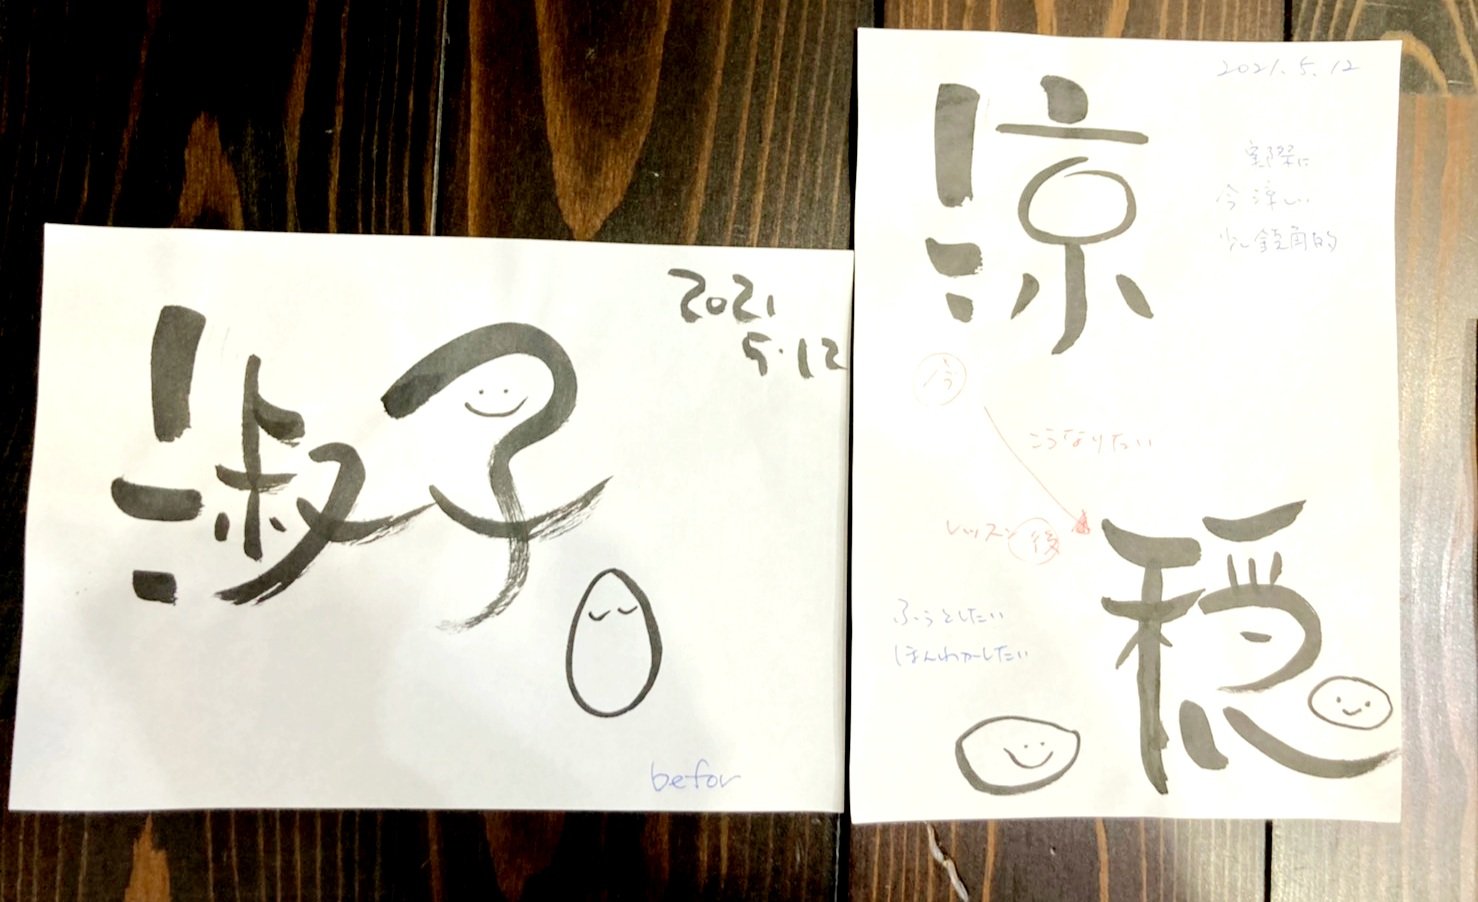 淑子
2021
5.12
befor
2021.5.12
涼
実際に
今涼しい
少し鋭角的
今
こうなりたい
レッスン後
穏
ふぅとしたい
ほんわかしたい